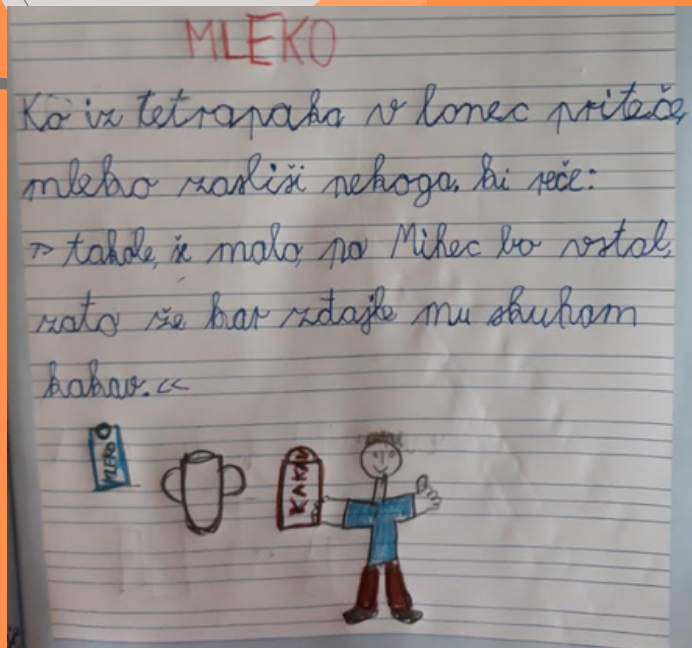 MLEKO
Ko iz tetrapaka v lonec priteče,
mleko zasliši nekoga, ki reče:
"takole, še malo, pa Mihec bo vstal,
zato že kar zdajle mu skuham
kakav."
MLEKO
KAKAV